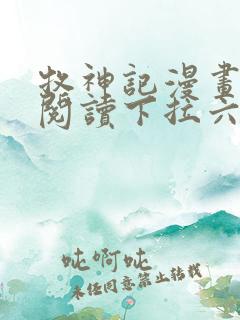 牧神記漫畫
閱讀下拉六
吨啊吨
未经同意禁止转载